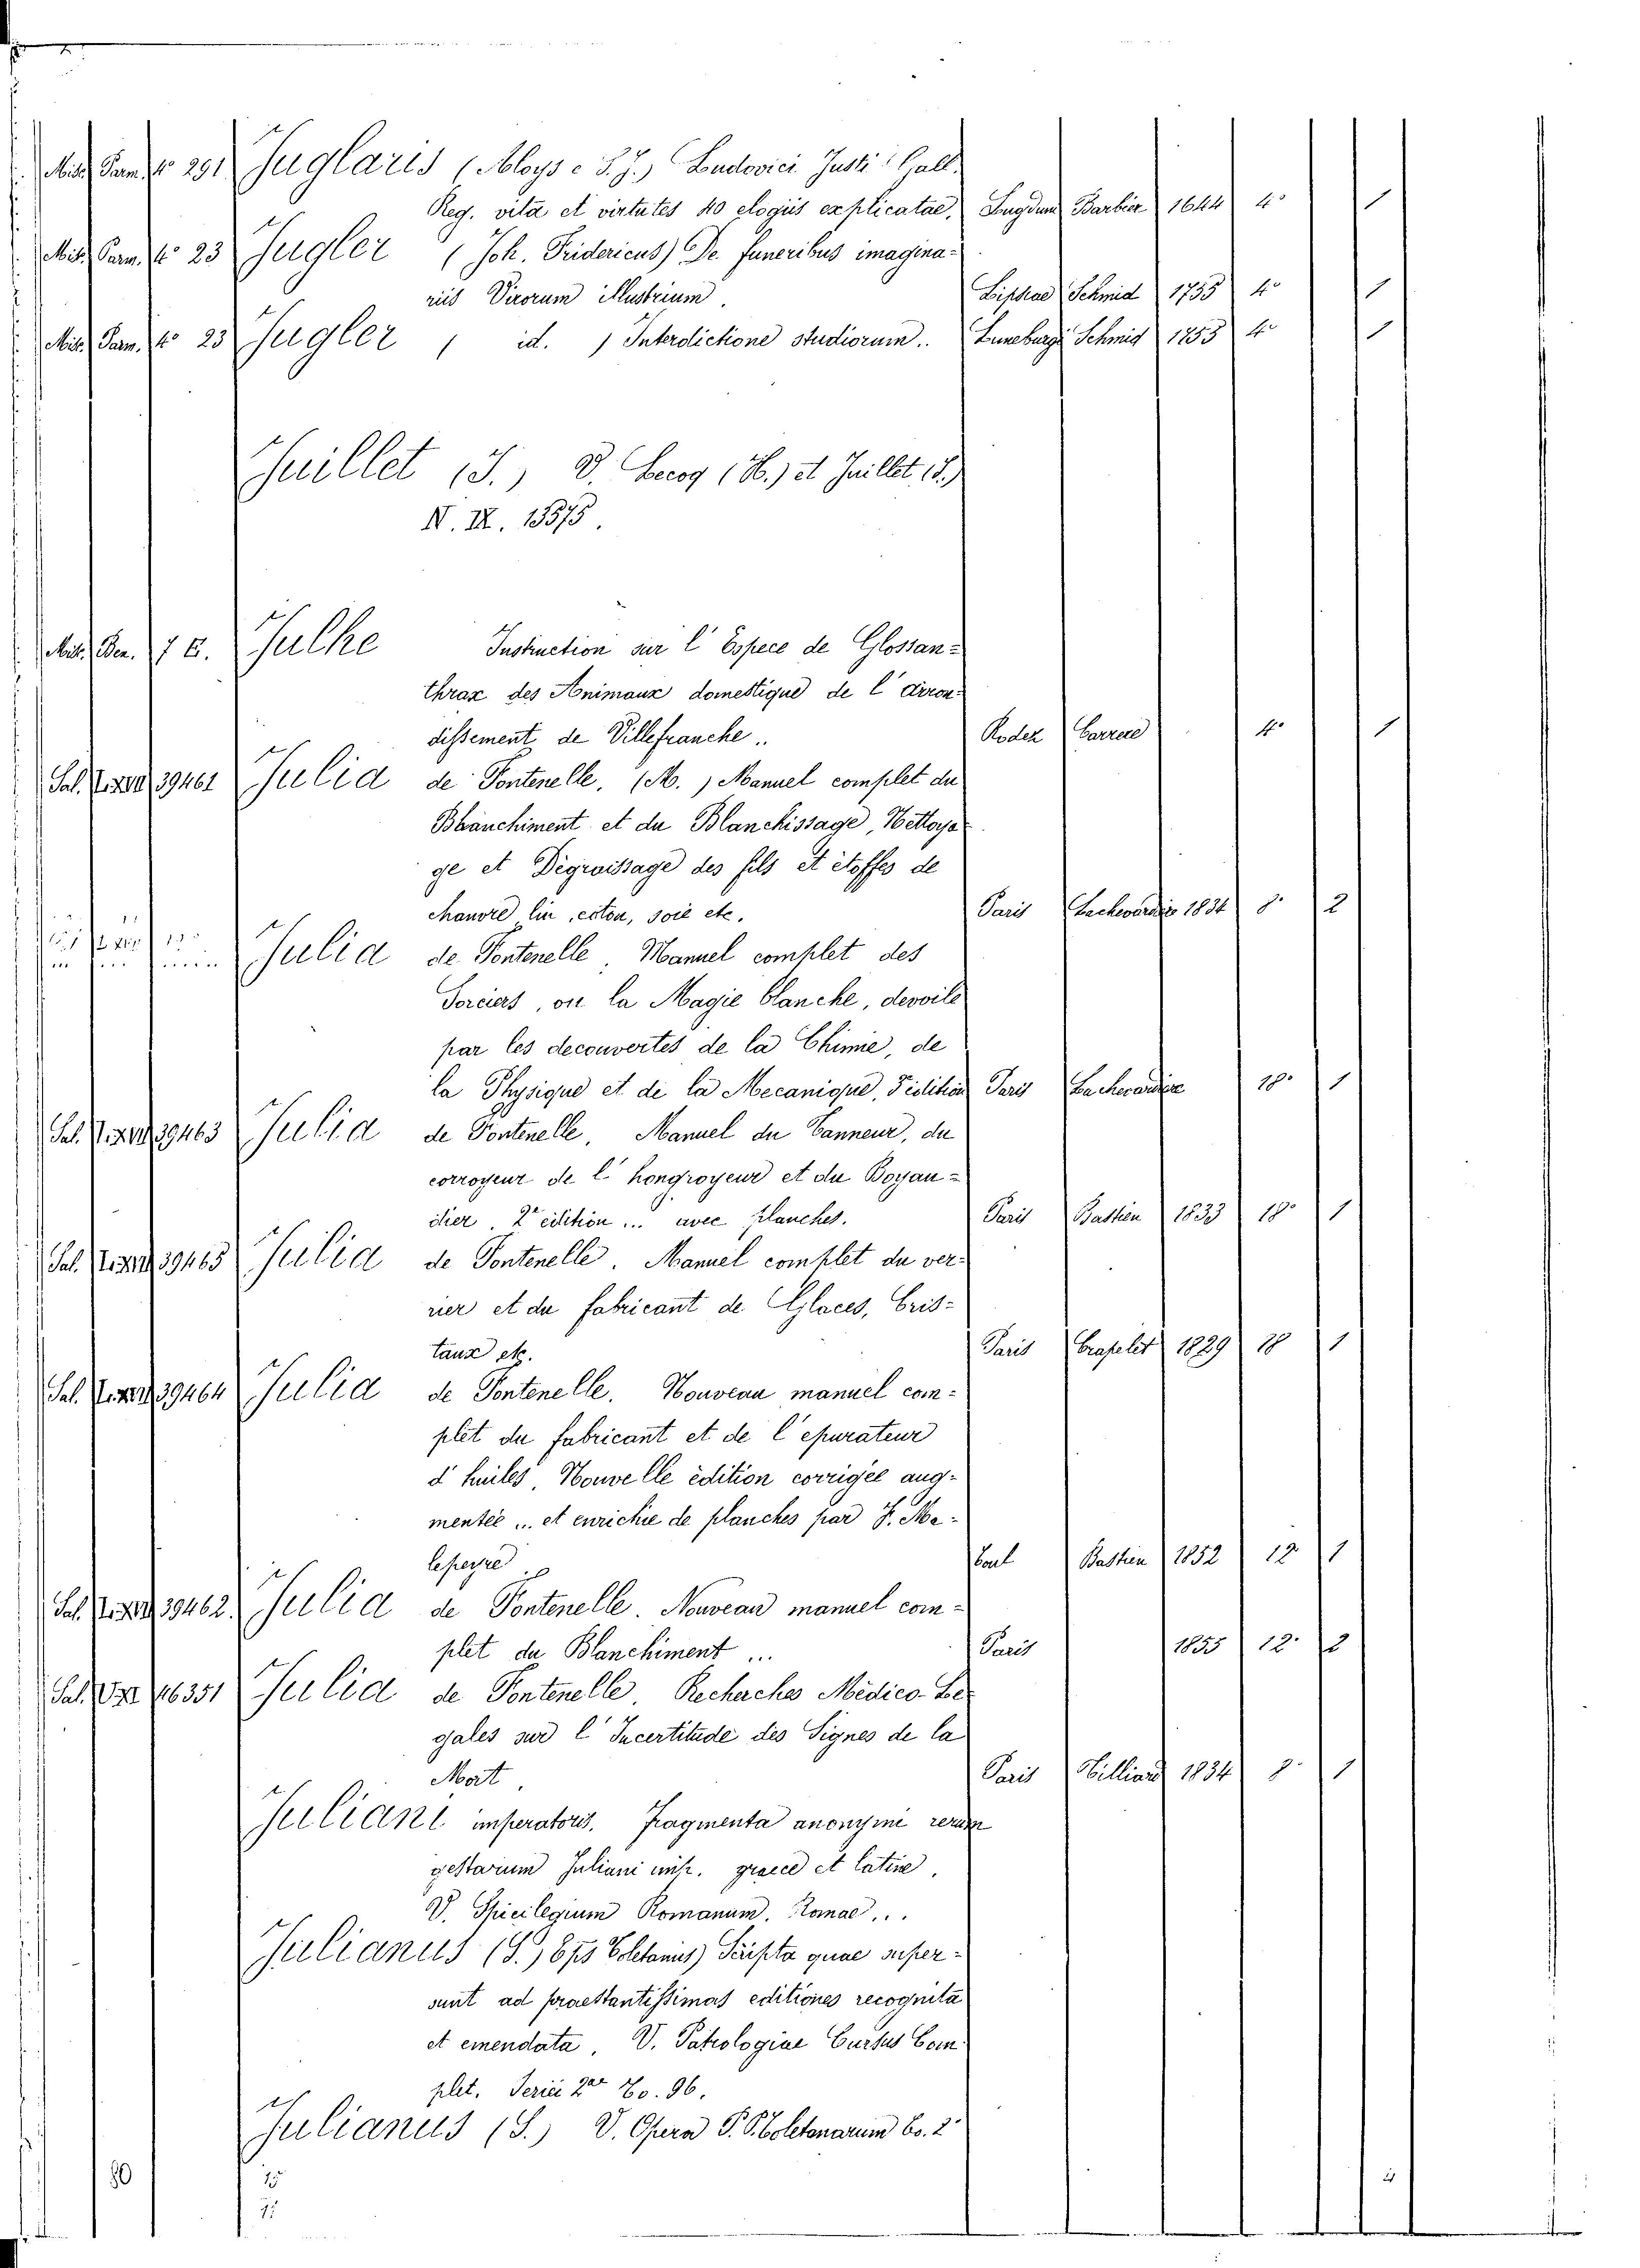 Misc. Parm. 4º 291 Juglaris (Aloys. S. J.) Ludovici Justi Gall.
Reg. vita et virtutes 40 elogiis explicatae, Lugdun Barbier 1644 4º 1
Misc. Parm. 4º 23 Jugler (Joh. Fridericus) De funeribus imagina-
riis Virorum illustrium. Lipsiae Schmid 1755 4º 1
Misc. Parm. 4º 23 Jugler ( id. ) Interdictione studiorum.. Luneburgi Schmid 1755 4º 1
Juillet (J.) V. Lecoy (H.) et Juillet (J.)
N. IX. 13575.
Julhe Instruction sur l'Espece de Glossan-
thrax des Animaux domestique de l'arron-
dissement de Villefranche.. Rodez Carrere 4º 1
Sal. 39461 Julia de Fontenelle, (M.) Manuel complet du
Blanchiment et du Blanchissage, Nettoya
ge et Dégraissage des fils et étoffes de
chanvre lin, coton, soie etc. Paris 1834 8º 2
Julia de Fontenelle, Manuel complet des
Sorciers, ou la Magie blanche, devoile
par les decouvertes de la Chimie, de
la Physique et de la Mecanique, Paris 18º 1
Sal. 39463 Julia de Fontenelle, Manuel du Tanneur, du
corroyeur de l'hongroyeur et du Boyau-
dier. 2e édition ... avec planches. Paris Bastien 1833 18º 1
Sal. 39465 Julia de Fontenelle. Manuel complet du ver-
rier et du fabricant de Glaces, Cris-
taux etc. Paris Crapelet 1829 18 1
Sal. 39464 Julia de Fontenelle. Nouveau manuel com-
plet du fabricant et de l'epurateur
d'huiles, Nouvelle édition corrigée aug-
mentée ... et enrichie de planches par F. Ma-
lepeyre Bastien 1852 12 1
Sal. 39462. Julia de Fontenelle. Nouveau manuel com-
plet du Blanchiment ... Paris 1855 12º 2
Sal. 46351 Julia de Fontenelle, Recherches Médico-Le-
gales sur l'Incertitude des Signes de la
Mort. Paris Rilliard 1834 8º 1
Juliani imperatoris. Fragmenta anonymi rerum
gestarum Juliani imp. graece et latine,
V. Spicilegium Romanum. Romae...
Julianus (S.) Eps Toletanus) Scripta quae super-
sunt ad praestantissimas editiones recognita
et emendata, V. Patrologiae Cursus Com-
plet. Seriei 2ae To. 96.
Julianus (S.) V. Opera P.P. Toletanarum to. 2º
80
15